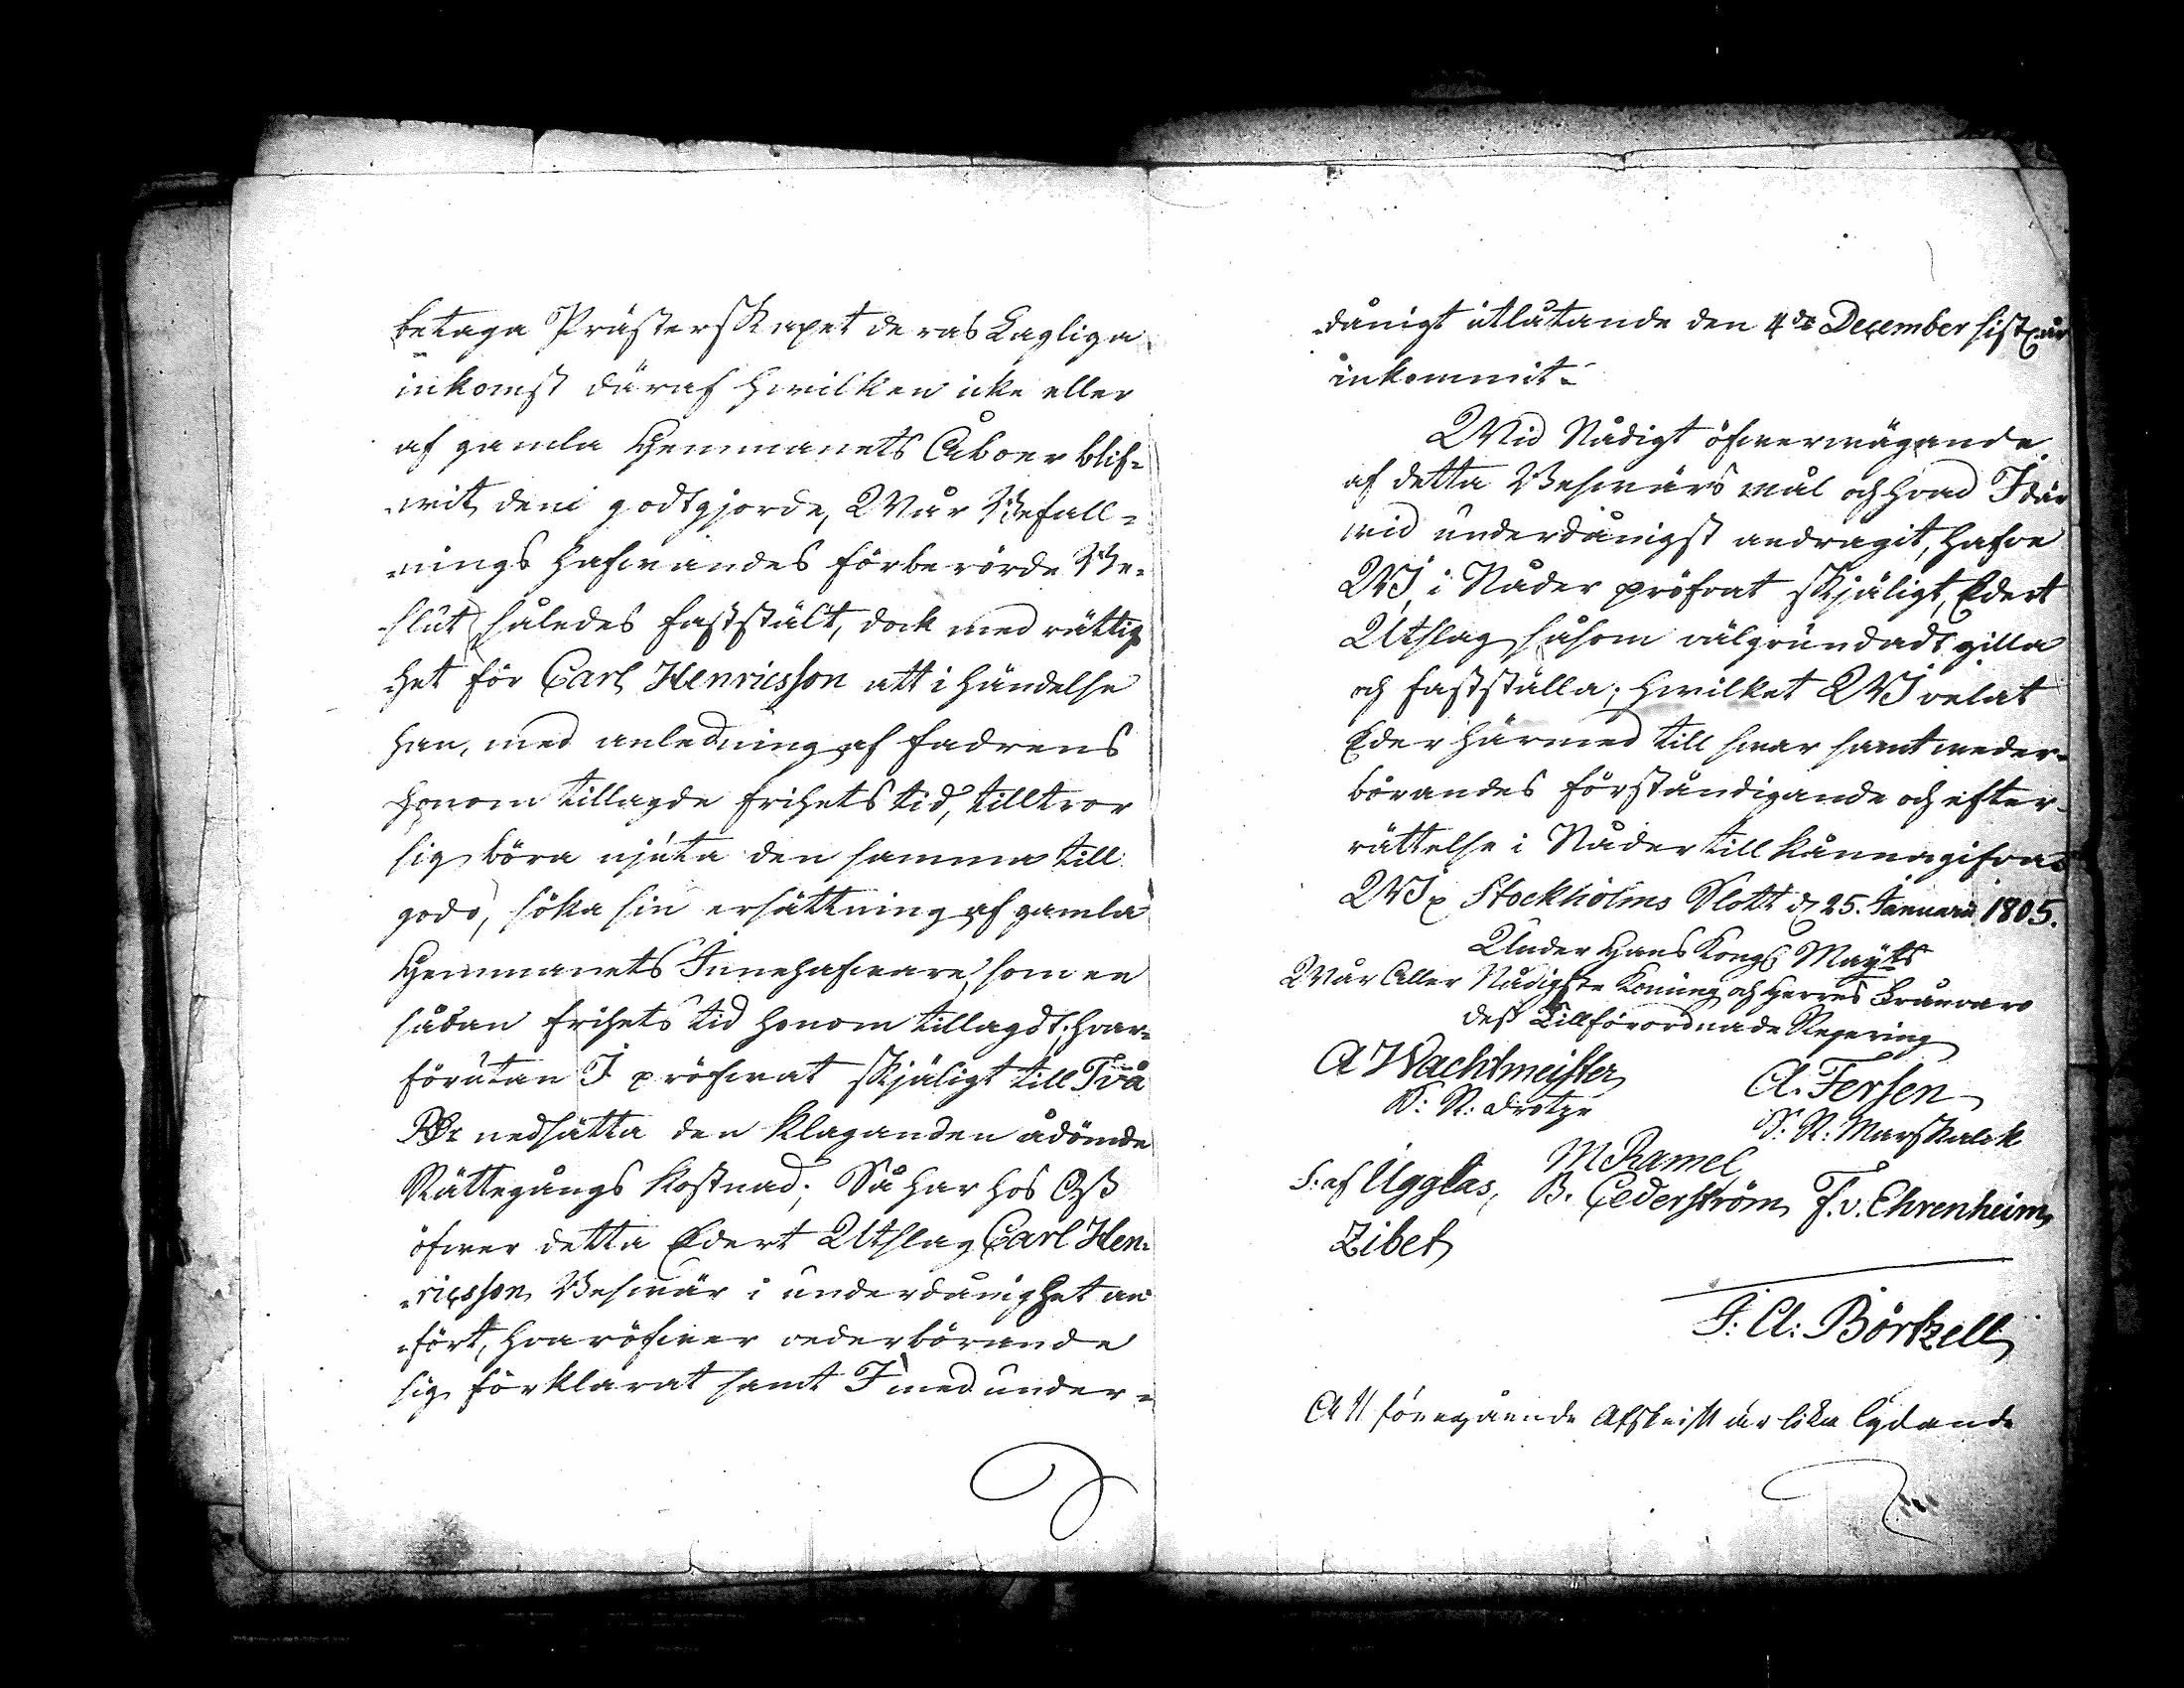 betaga Prästerskapet deras Lagliga
inkomst däraf hwilken icke eller
af gamla Hemmanets Åboer blif-
wit dem godtgjorde, Wår Befall-
nings hafwandes förberörde Be-
slut således fastställt, dock med rättig-
het för Carl Henricsson att i händelse
han, med anledning af fadrens
honom tillagde frihets tid, tilltror
sig böra njuta den samma till
godo, söka sin ersättning af gamla
Hemmanets Innehafware, som en
sådan frihets tid honom tillagdt; hvar-
förutan I pröfwat skjäligt till Två
Rdr nedsätta den Klaganden ådömde
Rättegångs kostnad; Så har hos Oss
öfwer detta Edert Utslag Carl Hen-
ricsson Beswär i underdånighet an-
fört, hvaröfwer wederbörande
sig förklarat samt I med under-
dånigt utlåtande den 4de December sistl. år
inkommit.
Wid Nådigt öfwerwägande
af detta Beswärs mål och hvad I där
wid underdånigst andragit, hafve
WI i Nåder pröfvat skjäligt, Edert
Utslag såsom välgrundadt gilla
och fastställa; hwilket WI velat
Eder härmed till swar samt weder-
börandes förståndigande och efter-
rättelse i Nåder till känna gifva
WI p Stockholms Slott d 25. Januarii 1805.
Under Hans Kongl Mayts
Wår Aller Nådigste Konung och Herres frånvaro
dess Tillförordnade Regering
A Wachtmeister A. Fersen
S: R: Drotze S: R: Marskalck
M Ramel
S: af Ugglas, B. Cederström F. v. Ehrenheim
Zibet
F: A: Börtzell
Att föregående Afskrift är lika lydande